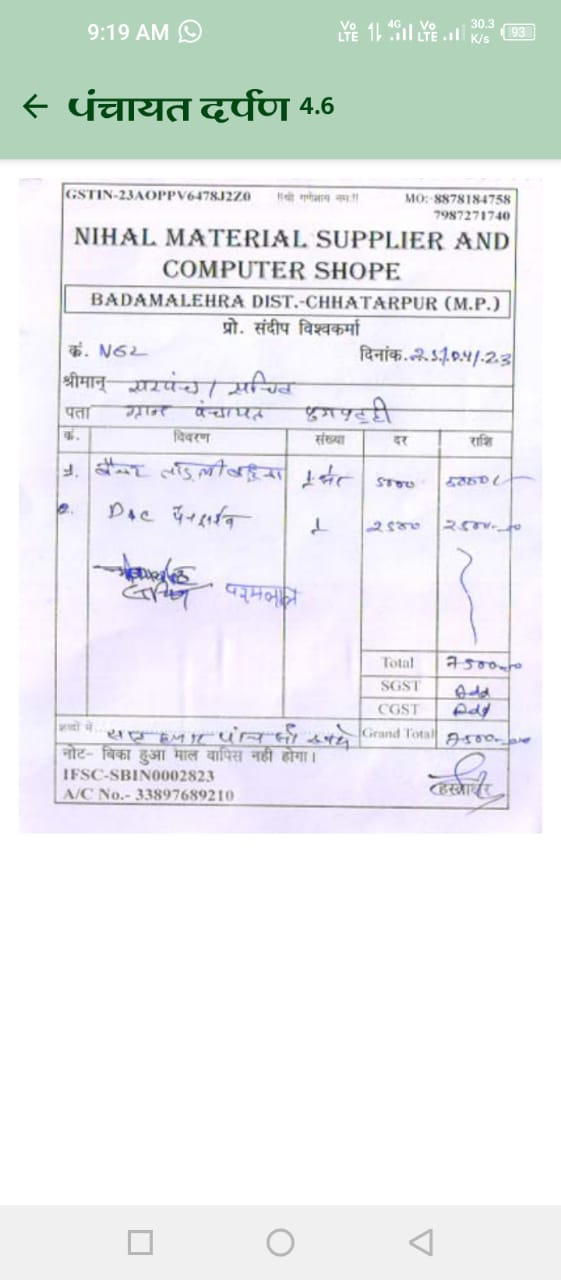 9:19 AM
Vo LTE 4G Vo LTE 30.3 K/s 93
← पंचायत दर्पण 4.6
GSTIN-23AOPPV6478J2Z0 ॥श्री गणेशाय नमः॥ MO:-8878184758
7987271740
NIHAL MATERIAL SUPPLIER AND
COMPUTER SHOPE
BADAMALEHRA DIST.-CHHATARPUR (M.P.)
प्रो. संदीप विश्वकर्मा
कं. N62 दिनांक.25/04/23
श्रीमान् सरपंच / सचिव
पता ग्राम पंचायत
कं. विवरण संख्या दर राशि
1. लाड़ली बहना 1 5000 5000
2. 1 2500 2500-00
Total 7500-00
SGST Add
CGST Add
शब्दों में सात हजार पांच सौ रुपये Grand Total 7500-00
नोट- बिका हुआ माल वापिस नही होगा।
IFSC-SBIN0002823
A/C No.- 33897689210
हस्ताक्षर